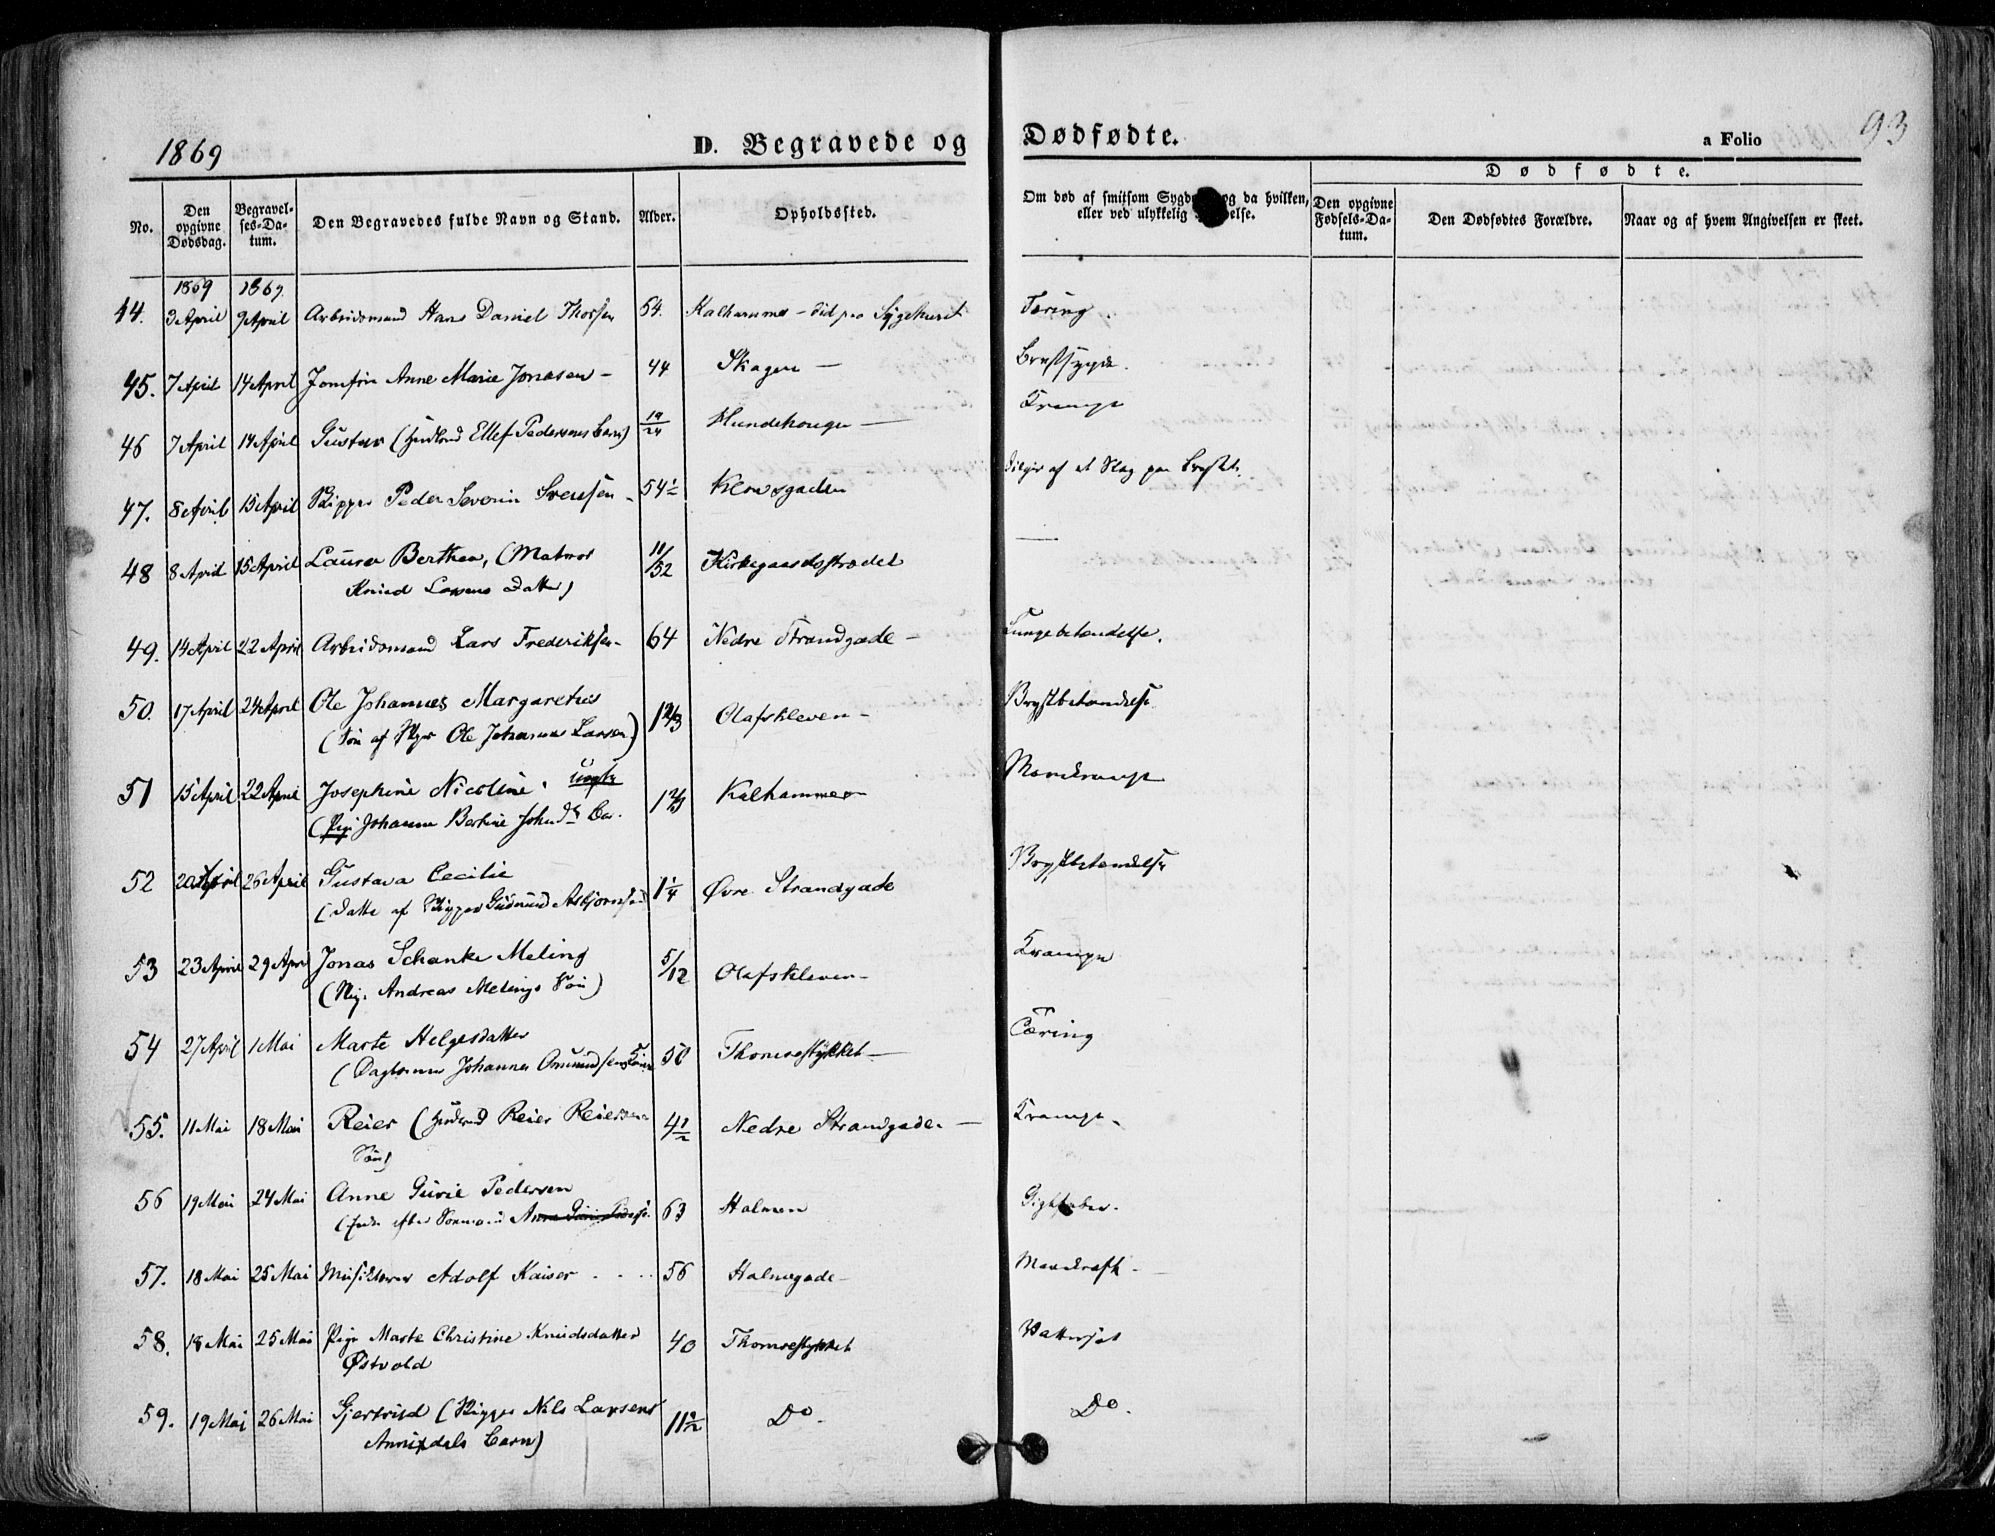 1869
D. Begravede og Dødfødte.
a Folio 93
No.
Den opgivne Dødsdag.
Begravelses-Datum.
Den Begravedes fulde Navn og Stand.
Alder.
Opholdssted.
Om død af smitsom og da hvilken, eller ved ulykkelig
Dødfødte.
Den opgivne Fødsels-Datum.
Den Dødfødtes Forældre.
Naar og af hvem Angivelsen er skeet.
1869 1869.
44. 3 April 9 April Arbeidsmand Hans Daniel Thorsen 54. Kalhammer - død paa Sygehuset Tæring.
45. 7 April 14 April Jomfru Anne Marie Jonasen - 44 Skagen - Brystsyge.
46 7 April 14 April Gustav ( Ellef Pedersens Barn) 19/24 Hundehougen - Krampe
47. 8 April 15 April Skipper Peder Severin Svensen - 54½ Klovsgaden Følger af et Slag paa Brystet.
48 8 April 15 April Laura Berthea, (Matros 11/52 Kirkegaardsstrædet —
Knud Larsens Datter)
49. 14 April 22 April Arbeidsmand Lars Frederiksen - 64 Nedre Strandgade - Lungebetændelse.
50. 17 April 24 April Ole Johannes Margaretus 1⅔ Olafskleven - Brystbetændelse
(Søn af Ole Johannes Larsen)
51 15 April 22 April Josephine Nicoline. uægte 1⅔ Kalhammer Mavekrampe
(Pige Johanne Bertine Bar.
52 20 April 26 April Gustava Cecilie 1¼ Øvre Strandgade Brystbetændelse
(Datter af Skipper Gudmund Asbjørnsen
53 23 April 29 Apr Jonas Schanke Meling 5/12 Olafskleven - Krampe
( Andreas Melings Søn)
54 27 April 1 Mai Marte Helgesdatter 50 Thomsestykket - Tæring
(Daglønner Johannes Omundsens Kone
55. 11 Mai 18 Mai Reier ( Reier Reiersens 4½ Nedre Strandgade. - Krampe.
Søn)
56 19 Mai 24 Mai Anne Gurie Pedersen 63 Holmen Gigtfeber.
(Enke efter Anna Gurie Pedersen
57. 18 Mai 25 Mai Musiklærer Adolf Kaiser . . . . 56 Holmegade - Mavekræft -
58. 18 Mai 25 Mai Pige Marte Christine Knudsdatter 40 Thomsestykket Vattersot
Østvold
59. 19 Mai 26 Mai Gjertrud (Skipper Nils Larsens 11½ Do. Do.
Annixdals Barn)